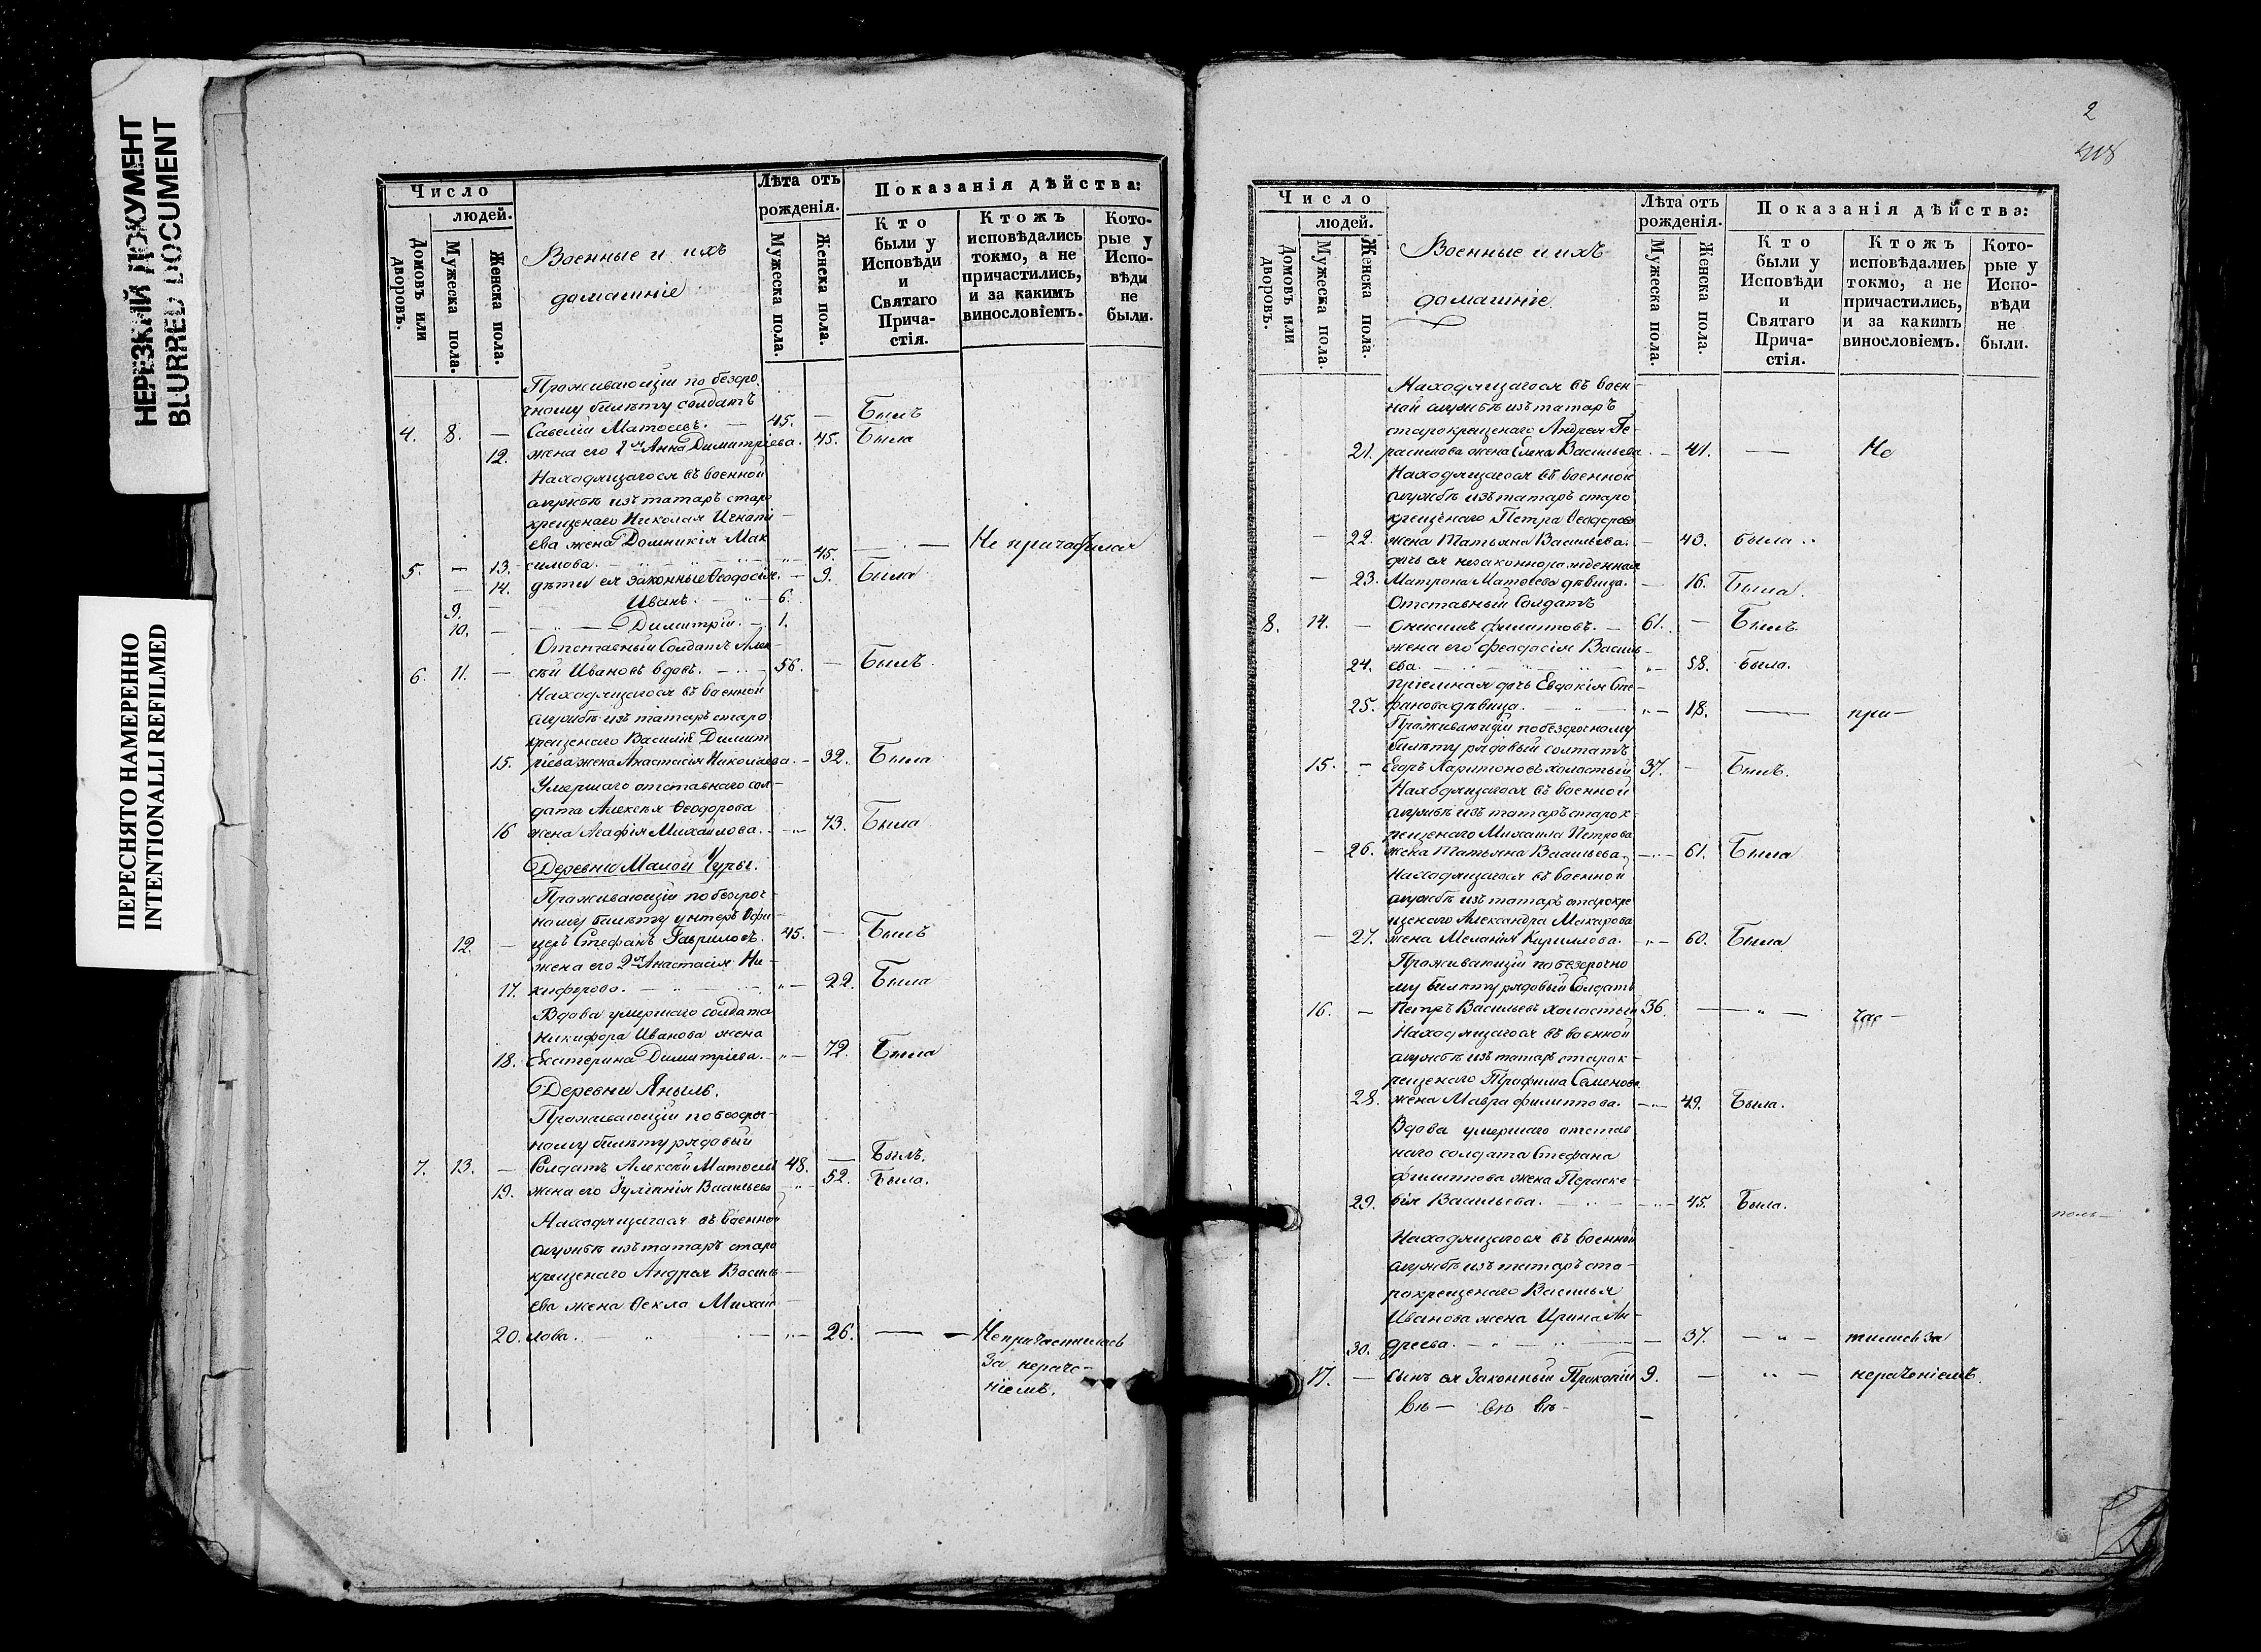 НЕРЕЗКИЙ ДОКУМЕНТ
BLURRED DOCUMENT
ПЕРЕСНЯТО НАМЕРЕННО
INTENTIONALLI REFILMED
Число
людей.
Домовъ или дворовъ.
Мужеска пола.
Женска пола.
Военные и ихъ
домашніе
Лѣта отъ
рожденія.
Мужеска пола.
Женска пола.
Показанія дѣйства:
Кто
были у
Исповѣди
и
Святаго
Прича-
стія.
Ктожъ
исповѣдались
токмо, а не
причастились,
и за какимъ
винословіемъ.
Кото-
рые у
Испо-
вѣди
не
были.
Проживающій по безсро
чному билѣту солдатъ
4. 8. — Савелій Матоѳевъ. — 45. — Былъ
12. жена его 2я Анна Димитріева. 45. Была
Находящагося въ военной
службѣ изъ татаръ старо
крещенаго Николая Игнаті
ева жена Домникія Мак
5. — 13. симова. — 45. — Не причастилась
— 14. дѣти ея законные Ѳеодосія. — 9. Была
9. — Иванъ. — 6.
10. — Димитрій. — 1.
Отставный Солдатъ Алек
6. 11. — сѣй Ивановъ вдовъ. — 56. — Былъ.
Находящагося въ военной
службѣ изъ татаръ старо
крещенаго Василія Димит
15. ріева жена Анастасія Николаева. — 32. Была
Умершаго отставнаго сол-
дата Алексѣя Ѳеодорова
16 жена Агафія Михайлова. — 73. Была
Деревни Малой Чуры.
Проживающій по безсроч-
ному билѣту унтеръ Офи-
12. — церъ Стефанъ Гавриловъ. 45. — Былъ
жена его 2я Анастасія Ни-
17. кифорова. — 22. Была
Вдова умершаго солдата
Никифора Иванова жена
18. Екатерина Димитріева. — 72. Была
Деревни Яныль.
Проживающій по безсроч-
ному билѣту рядовый
7. 13. — Солдатъ Алексѣй Матоѳевъ 48. — Былъ.
19. жена его Іуліанія Васильева — 52. Была.
Находящагося въ военной
службѣ изъ татаръ старо
крещенаго Андрея Василь-
ева жена Ѳекла Михай
20. лова. — 26. — Не причастилась
За нераче-
ніемъ.
2
Число
людей.
Домовъ или дворовъ.
Мужеска пола
Женска пола.
Военные и ихъ
домашніе.
Лѣта отъ
рожденія.
Мужеска пола.
Женска пола.
Показанія дѣйства:
Кто
были у
Исповѣди
и
Святаго
Прича-
стія.
Ктожъ
исповѣдались
токмо, а не
причастились,
и за какимъ
винословіемъ.
Кото-
рые у
Испо-
вѣди
не
были.
Находящагося въ воен-
ной службѣ изъ татаръ
старокрещенаго Андрея Ге-
21. расимова жена Елена Васильева. — 41. — Не
Находящагося въ военной
службѣ изъ татаръ старо
крещенаго Петра Ѳеодорова
— 22. жена Татьяна Васильева. — 43. была
дочь ея незаконнорожденная
— 23. Матрона Матоѳева дѣвица. — 16. Была.
Отставный Солдатъ
8. 14. — Онисимъ Филипповъ. — 61. — Былъ.
жена его Феодосія Василь-
24. ева. — 58. Была.
Пріемная дочь Евдокія Сте-
25. фанова дѣвица. — 18. — при—
Проживающій по безсрочному
билѣту рядовый солтатъ
15. — Егоръ Харитоновъ холостый 37. — Былъ.
Находящагося въ военной
службѣ изъ татаръ старок
рещенаго Михаила Петрова
— 26. жена Татьяна Васильева. — 61. Была
Находящагося въ военной
службѣ изъ татаръ старокре
щенаго Александра Макарова
— 27. жена Меланія Кириллова. — 60. Была
Проживающій по безсрочно
му билѣту рядовый Солдатъ
16. — Петръ Васильевъ холостый 36. — час—
Находящагося въ военной
службѣ изъ татаръ старок-
рещенаго Трофима Семенова
28. жена Мавра Филиппова. — 49. Была.
Вдова умершаго отстав
наго солдата Стефана
Филиппова жена Параске-
29. вія Васильева. — 45. Была.
Находящагося въ военной
службѣ изъ татаръ ста-
рокрещенаго Василья
Иванова жена Ирина Ан-
30. дреева. — 37. — тились за
17. — сынъ ея Законный Прокопій 9. — нераченіемъ.